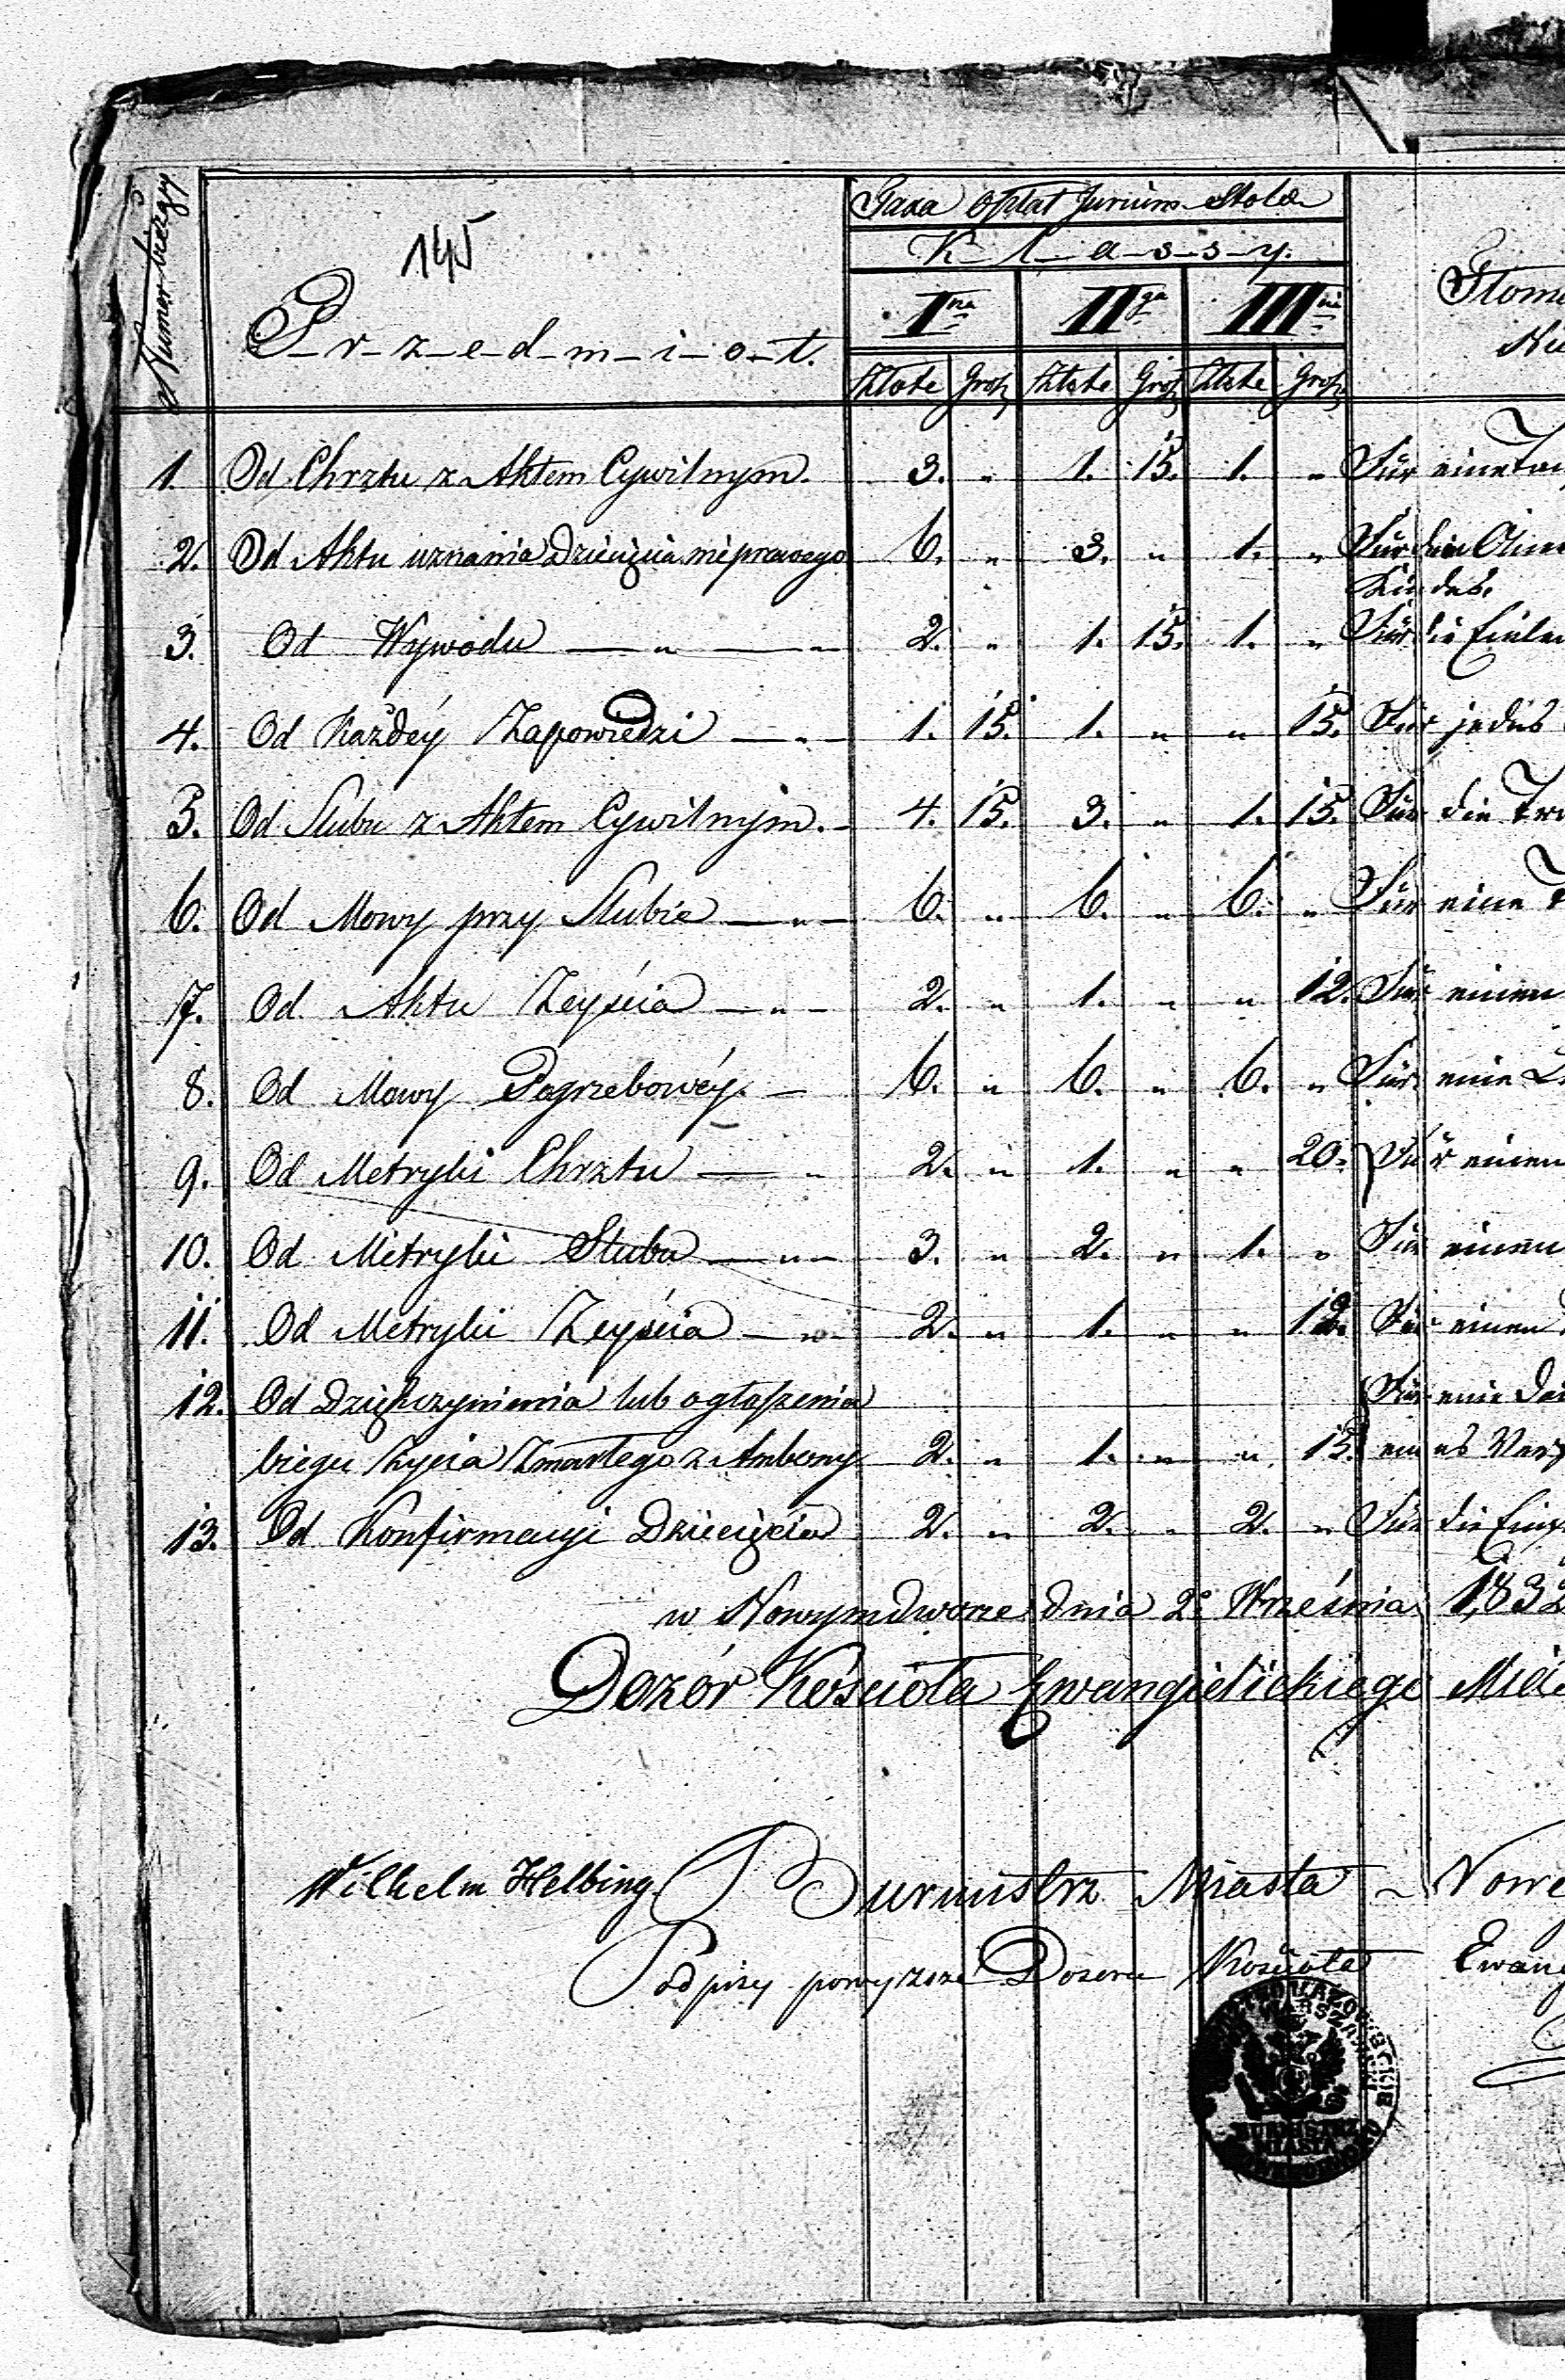 Numer bieżący
145
Przedmiot.
Taxa Opłat Jurium Stolæ
Klassy.
Iza IIga IIIcia
Złote Grosz Złote Grosz Złote Grosz
1. Od Chrztu z Aktem Cywilnym. 3. " 1. 15. 1. " Für eine
2. Od Aktu uznania Dziecięcia nieprawego 6. " 3. " 1. " Für
Kindes.
3. Od Wywodu — " — " 2. " 1. 15. 1. " Für die
4. Od Każdéy Zapowiedzi — " — 1. 15. 1. " " 15. Für jedes
5. Od Slubu z Aktem Cywilnym. - 4. 15. 3. " 1. 15. Für die
6. Od Mowy przy Slubie — " — 6. " 6. " 6. " Für eine
7. Od Aktu Zeyścia — " — 2. " 1. " " 12. Für einen
8. Od Mowy Pogrzebowéy. — 6. " 6. " 6. " Für eine
9. Od Metryki Chrztu — " 2. " 1. " " 20. Für einen
10. Od Metryki Slubu — " — 3. " 2. " 1. " Für einen
11. Od Metryki Zeyścia — " — 2. " 1. " " 12. Für einen
12. Od Dziękczynienia lub ogłaszenia Für eine
biegu życia Zmarłego z Ambony 2. " 1. " " 15. eines
13. Od Konfirmacyi Dziecięcia 2. " 2. " 2. " Für die
w Nowymdworze dnia 2o Września 1832
Dozór Kościoła Ewangielickiego
Wilhelm Helbing Burmistrz Miasta Nowe
Podpisy powyższe Dozoru Kościoła Ewang
BURMISTRZ
MIASTA